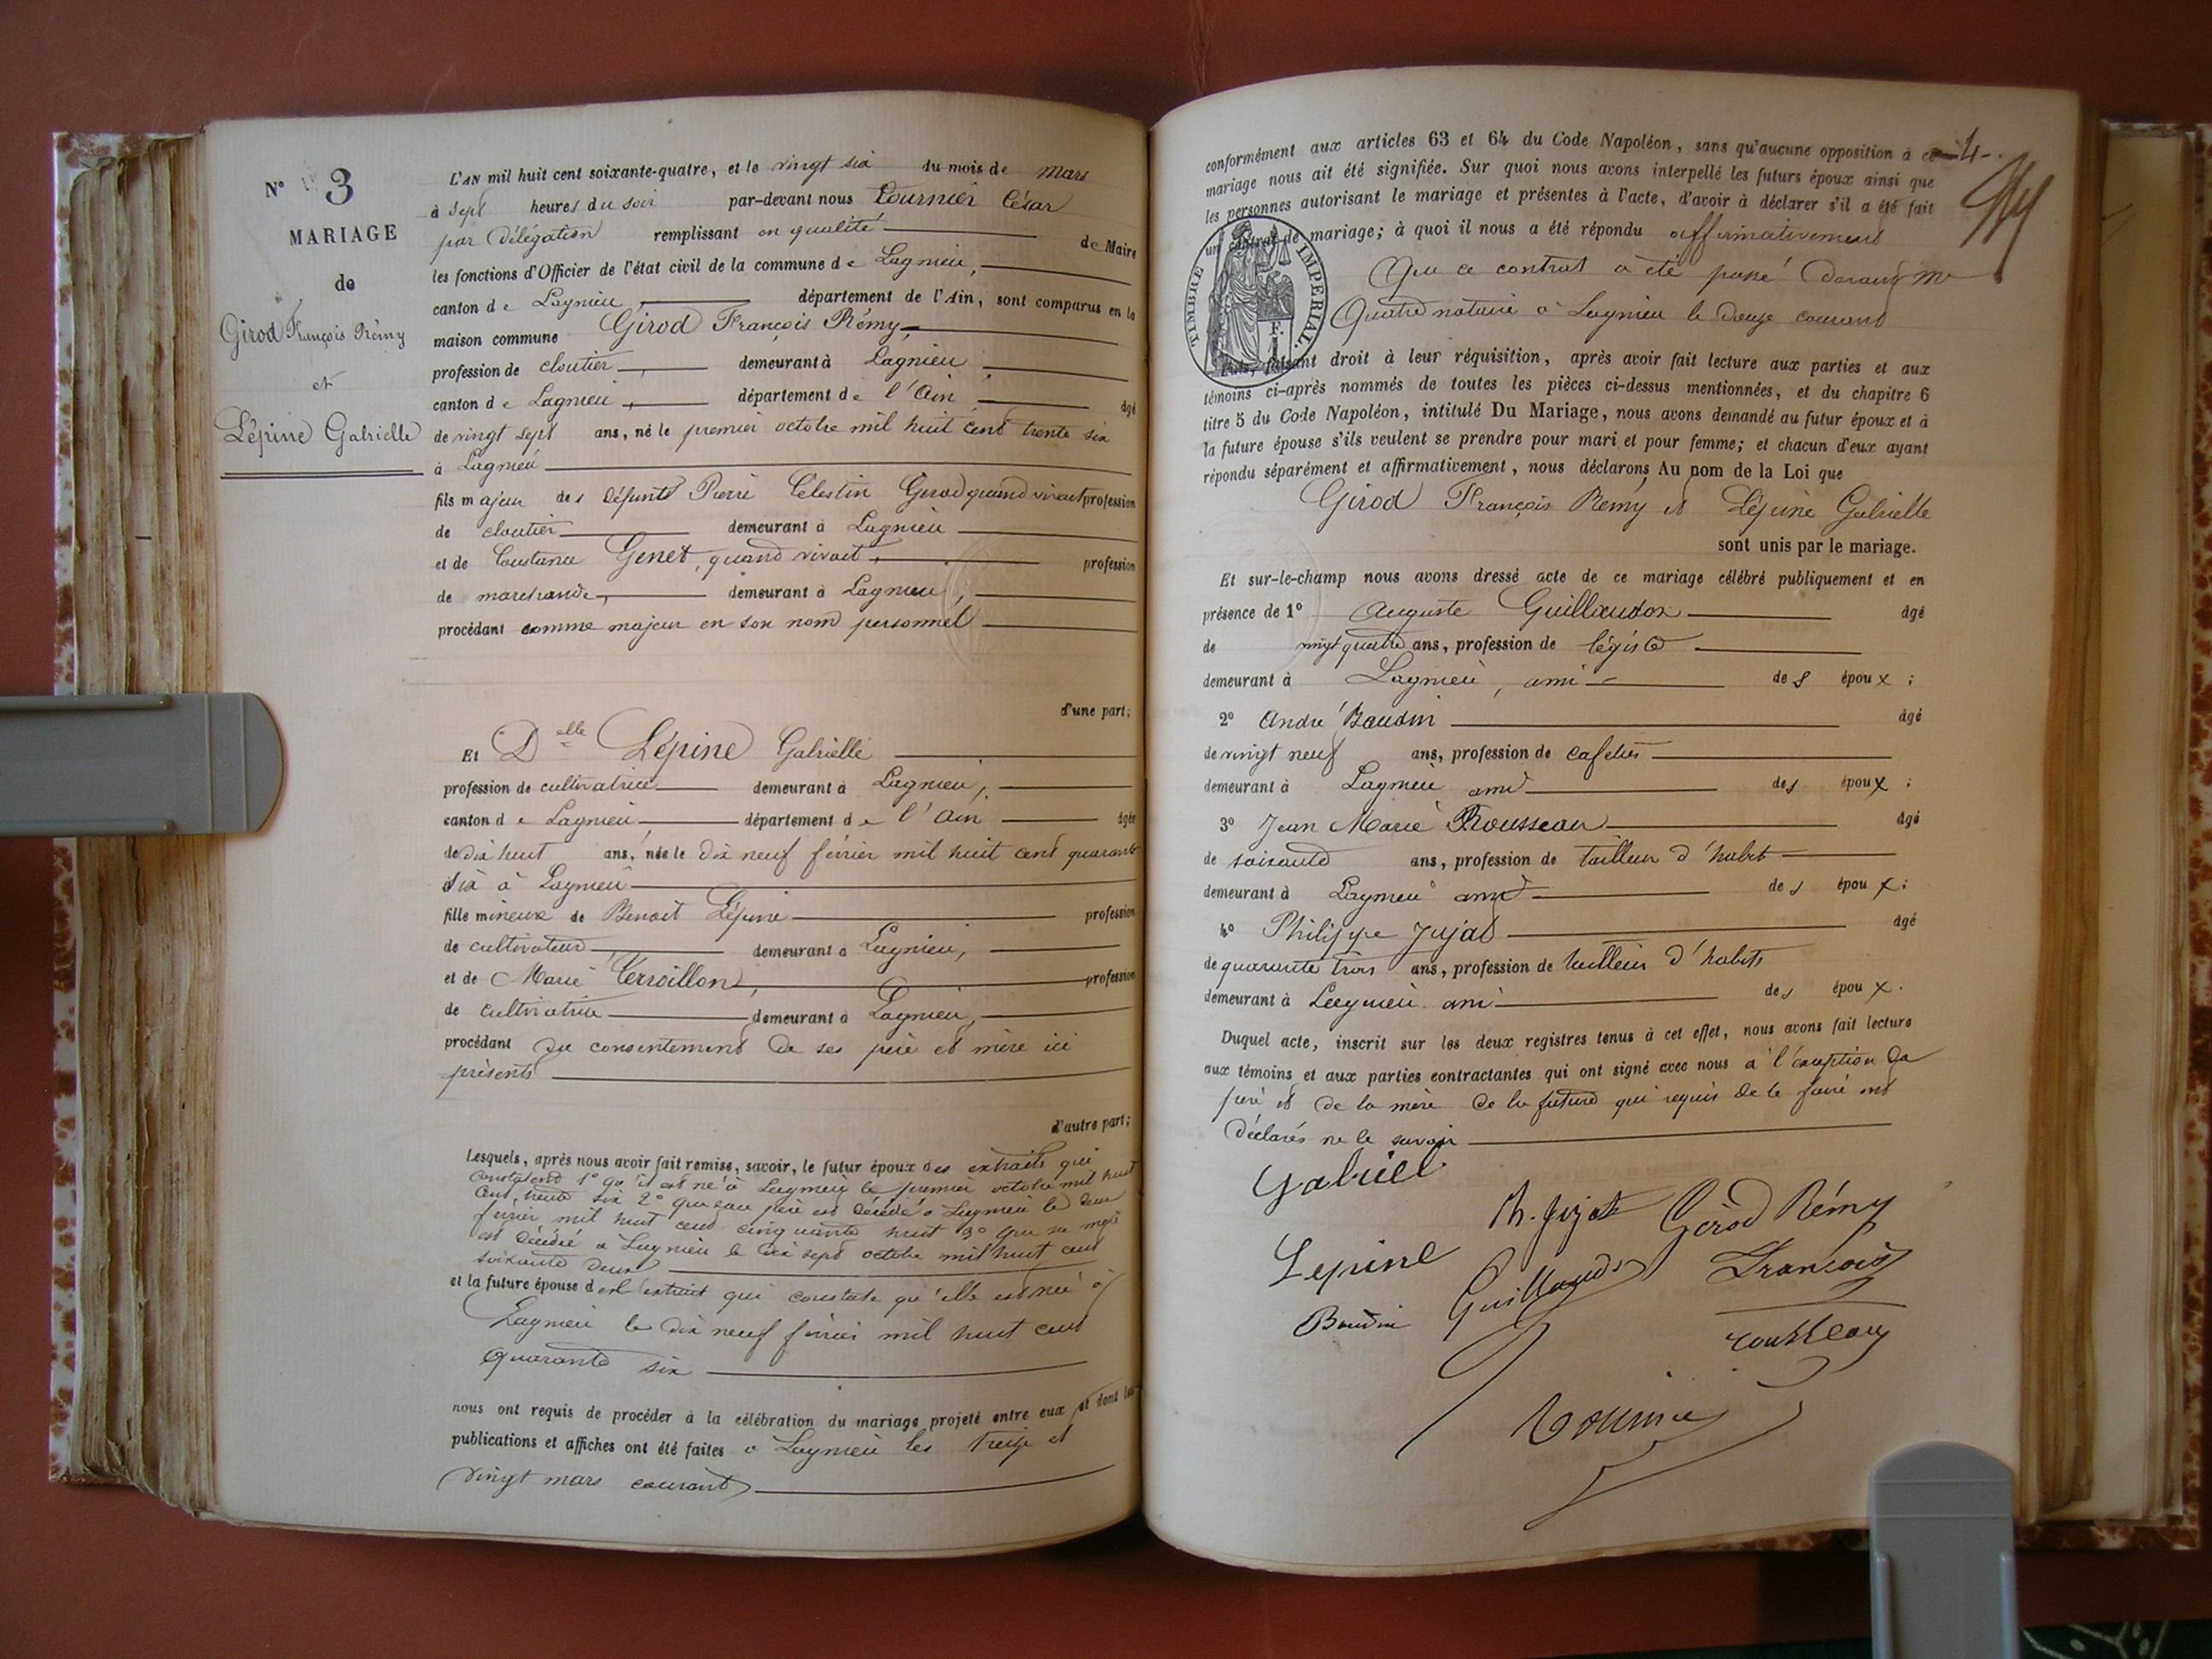 N° 3
MARIAGE
de
Girod François Rémy
et
Lépine Gabrielle
L'AN mil huit cent soixante-quatre, et le vingt six du mois de mars
à sept heures du soir par-devant nous Tournier César
par délégation remplissant en qualité de Maire
les fonctions d'Officier de l'état civil de la commune de Lagnieu,
canton de Lagnieu, département de l'Ain, sont comparus en la
maison commune Girod François Rémy
profession de cloutier, demeurant à Lagnieu,
canton de Lagnieu, département de l'Ain, âgé
de vingt sept ans, né le premier octobre mil huit cent trente six
à Lagnieu
fils majeur des défunts Pierre Célestin Girod quand vivait profession
de cloutier demeurant à Lagnieu
et de Constance Genet, quand vivait, profession
de marchande, demeurant à Lagnieu,
procédant comme majeur en son nom personnel
d'une part;
Et Delle Lépine Gabrielle
profession de cultivatrice demeurant à Lagnieu,
canton de Lagnieu, département de l'Ain âgée
de dix huit ans, née le dix neuf février mil huit cent quarante
six à Lagnieu
fille mineure de Benoit Lépine profession
de cultivateur, demeurant à Lagnieu,
et de Marie Verroillon, profession
de cultivatrice demeurant à Lagnieu,
procédant du consentement de ses père et mère ici
présents
d'autre part;
Lesquels, après nous avoir fait remise, savoir, le futur époux des extraits qui
constatent 1° qu'il est né à Lagnieu le premier octobre mil huit
cent trente six 2° que son père est décédé à Lagnieu le deux
février mil huit cent cinquante huit 3° que sa mère
est décédée à Lagnieu le dix sept octobre mil huit cent
soixante deux
et la future épouse de l'extrait qui constate qu'elle est née à
Lagnieu le dix neuf février mil huit cent
quarante six
nous ont requis de procéder à la célébration du mariage projeté entre eux et dont les
publications et affiches ont été faites à Lagnieu les treize et
vingt mars courant
4
conformément aux articles 63 et 64 du Code Napoléon, sans qu'aucune opposition à ce
mariage nous ait été signifiée. Sur quoi nous avons interpellé les futurs époux ainsi que
les personnes autorisant le mariage et présentes à l'acte, d'avoir à déclarer s'il a été fait
un contrat de mariage; à quoi il nous a été répondu affirmativement
Que ce contrat a été passé devant Me
Quatre notaire à Lagnieu le douze courant
TIMBRE IMPERIAL.
Puis, faisant droit à leur réquisition, après avoir fait lecture aux parties et aux
témoins ci-après nommés de toutes les pièces ci-dessus mentionnées, et du chapitre 6
titre 5 du Code Napoléon, intitulé Du Mariage, nous avons demandé au futur époux et à
la future épouse s'ils veulent se prendre pour mari et pour femme; et chacun d'eux ayant
répondu séparément et affirmativement, nous déclarons Au nom de la Loi que
Girod François Rémy et Lépine Gabrielle
sont unis par le mariage.
Et sur-le-champ nous avons dressé acte de ce mariage célébré publiquement et en
présence de 1° Auguste Guillaudon âgé
de vingt quatre ans, profession de légiste
demeurant à Lagnieu, ami des époux;
2° André Baudin âgé
de vingt neuf ans, profession de cafetier
demeurant à Lagnieu ami des époux;
3° Jean Marie Rousseau âgé
de soixante ans, profession de tailleur d'habit
demeurant à Lagnieu ami des époux;
4° Philippe Jujat âgé
de quarante trois ans, profession de tailleur d'habits
demeurant à Lagnieu ami des époux.
Duquel acte, inscrit sur les deux registres tenus à cet effet, nous avons fait lecture
aux témoins et aux parties contractantes qui ont signé avec nous à l'exception du
père et de la mère de la future qui requis de le faire ont
déclarés ne le savoir
Gabriel
Ph. Jujat Girod Rémy
Lepine Guillaudon François
Baudin rousseau
Tournier